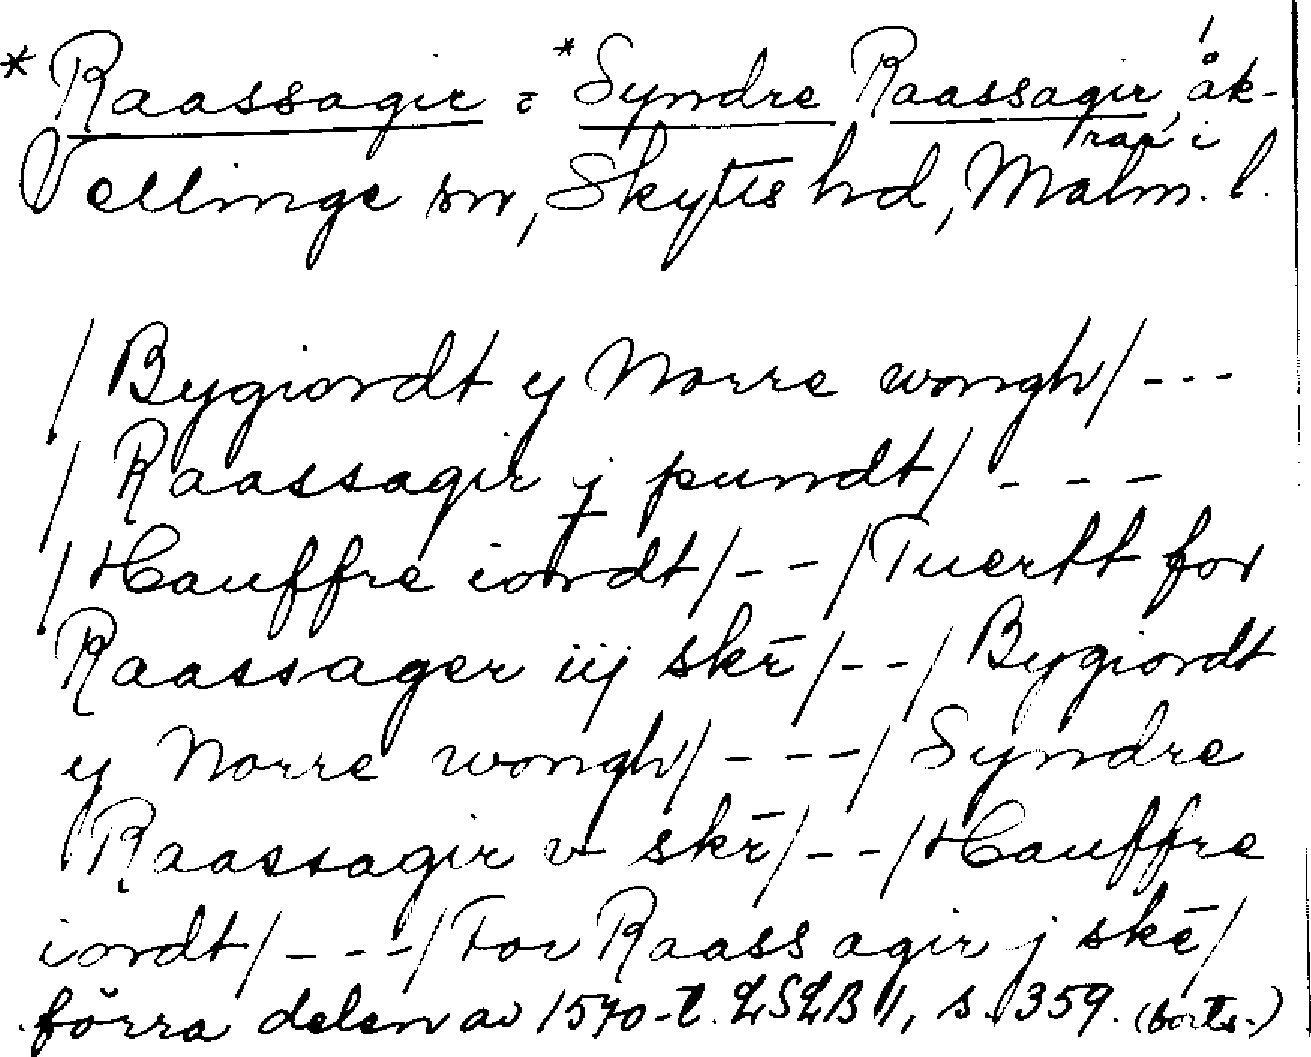 * Raassagir = * Syndre Raassagir åk-
rar i
Vellinge sn, Skytts hd, Malm. l.
/ Bygiordt y Norre wongh / - - -
/ Raassagir j pundt / - - -
/ Hauffre iordt / - - / Tuertt for
Raassager iij skē / - - / Bygiordt
y Norre wongh / - - - / Syndre
Raassagir v skē / - - / Hauffre
iordt / - - - / For Raassagir j skē /
förra delen av 1570-t. LSLB II, s. 359. (forts.)